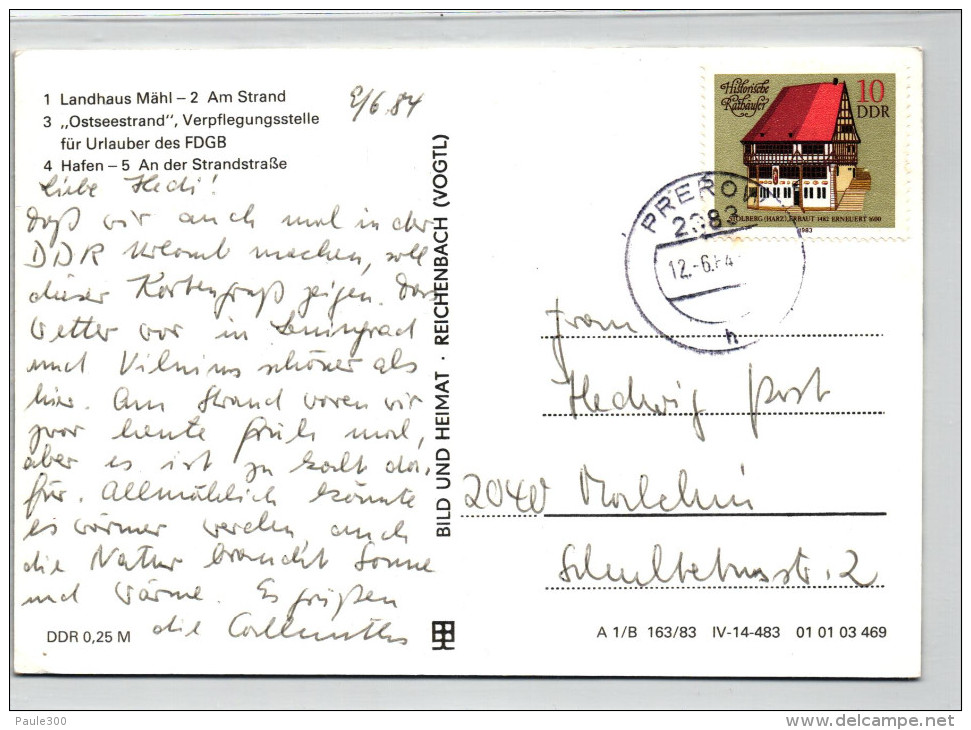 1 Landhaus Mähl – 2 Am Strand
3 „Ostseestrand", Verpflegungsstelle
für Urlauber des FDGB
4 Hafen – 5 An der Strandstraße
/6.84
Liebe Hedi!
Daß wir auch mal in der
DDR Urlaub machen, soll
dieser Kartengruß zeigen. Das
Wetter war in Leningrad
und Vilnius schöner als
hier. Am Strand waren wir
zwar heute früh mal,
aber es ist zu kalt da-
für. Allmählich könnte
es wärmer werden, auch
die Natur braucht Sonne
und Wärme. Es grüßen
die
DDR 0,25 M
BILD UND HEIMAT · REICHENBACH (VOGTL)
Historische
Rathäuser
10
DDR
STOLBERG (HARZ), ERBAUT 1482 ERNEUERT 1600
1983
PREROW
2383
12.-6.84
h
Frau
Hedwig Post
2040 Malchin
Schultetusstr. 2
A 1/B 163/83 IV-14-483 01 01 03 469
Paule300
www.delcampe.net